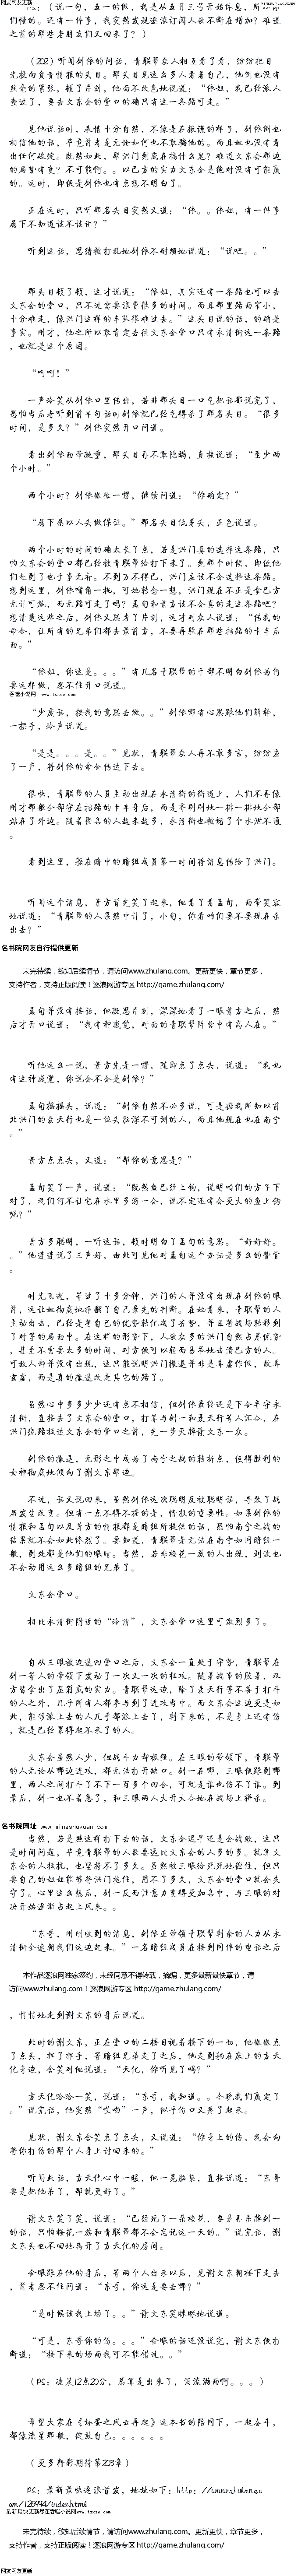 网友网友更新
PS：（说一句，五一的假，我是从五月三号开始休息，所
们懂的。还有一件事，我突然发现逐浪订阅人数不断在增加？难道
之前的那些老朋友们又回来了？）
（202）听闻剑依的问话，青联帮众人相互看了看，纷纷把目
光投向负责情报的头目。那头目见这么多人看着自己，他倒也没有
丝毫的紧张，顿了片刻，他面不改色地说道：“依姐，我已经派人
查过了，要去文东会的营口的确只有这一条路可走。”
见他说话时，表情十分自然，不像是在撒谎的样子，剑依倒也
相信他的话，毕竟前者是无论如何也不敢骗他的。而且她也没有看
出任何破绽。既然如此，那洪门到底在搞什么鬼？难道文东会那边
的局势有变？不可能啊。。以己方的实力文东会是绝对没有可能赢
的。这时，即使是剑依也有点想不明白了。
正在这时，只听那名头目突然又道：“依。。依姐，有一件事
属下不知道该不该讲？”
听到这话，思绪被打乱地剑依不耐烦地说道：“说吧。。”
那头目顿了顿，这才说道：“依姐，其实还有一条路也可以去
文东会的营口，只不过需要浪费很多的时间。而且那里路面窄小，
十分难走，像洪门这样的车队很难过去。”这头目说的话，的确是
事实。刚才，他之所以敢肯定去往文东会营口只有永清街这一条路
，也就是这个原因。
“呵呵！”
一声冷笑从剑依口里传出，若非那头目一口气把话都说完了，
恐怕当后者听到前半句话时剑依就已经气得杀了那名头目。“很多
时间，是多久？”剑依突然开口问道。
看出剑依面带凝重，那头目再不敢隐瞒，直接说道：“至少两
个小时。”
两个小时？剑依微微一愣，继续问道：“你确定？”
“属下愿以人头做保证。”那名头目低着头，正色说道。
两个小时的时间的确太长了点，若是洪门真的选择这条路，只
怕文东会的营口都已经被青联帮给打下来了。到那个时候，即使他
们赶到了也于事无补。不到万不得已，洪门应该不会选择这条路。
想到这里，剑依嘴角一挑，可她转念一想，洪门现在不正是他已方
无计可施，而无路可走了吗？孟旬和萧方该不会真的走这条路吧？
想清楚这些之后，剑依又思考了片刻，这才对众人说道：“传我的
命令，让所有的兄弟们都去最前方，不要再躲在那些拦路的卡车后
面。”
“依姐，你这是。。。。”有几名青联帮的干部不明白剑依为何
要这样做，忍不住开口说道。
吞噬小说网 www.tsxsw.com
“少废话，按我的意思去做。。”剑依哪有心思跟他们解释，
一摆手，冷声说道。
“是是。。。是。。”见状，青联帮众人再不敢多言，纷纷应
了一声，将剑依的命令传达下去。
很快，青联帮的人员主动出现在永清街的街道上，人们不再像
刚才那般全部守在拦路的卡车身后，而是齐刷刷地一排一排地全部
站在了外边。随着聚集的人越来越多，永清街也被堵了个水泄不通
。
看到这里，躲在暗中的暗组成员第一时间将消息传给了洪门。
听闻这个消息，萧方首先笑了起来，他看了看孟旬，面带笑容
地说道：“青联帮的人果然中计了，小旬，你看咱们要不要现在杀
出去？”
名书院网友自行提供更新
未完待续，欲知后续情节，请访问www.zhulang.com。更新更快，章节更多，
支持作者，支持正版阅读！逐浪网游专区 http://game.zhulang.com/
孟旬并没有接话，他凝思片刻，深深地看了一眼萧方之后，然
后才开口说道：“我有种感觉，对面的青联帮阵营中有高人在。”
听他这么一说，萧方先是一愣，随即点了点头，说道：“我也
有这种感觉，你说会不会是剑依？”
孟旬摇摇头，说道：“剑依自然不必多说，可是据我所知以前
北洪门的袁天行也是一位头脑深不可测的人，而且他现在也在南宁
。”
萧方点点头，又道：“那你的意思是？”
孟旬笑了一声，说道：“既然鱼已经上钩，说明咱们的方子下
对了，我们何不让它在水里多游一会，说不定还有会更大的鱼上钩
呢？”
萧方多聪明，一听这话，顿时明白了孟旬的意思。“好好好。
。”他连连说了三声好，由此可见他对孟旬这个办法是多么的赞赏
。
时光飞逝，等过了十多分钟，洪门的人并没有出现在剑依的眼
前，这让她彻底地推翻了自己最先的判断。在她看来，青联帮的人
主动出去，已经是将自己的优势转化成了劣势，并且将战场转移到
了对等的局面中。在这样的形势下，人数众多的洪门自然占尽优势
，甚至不需要太多的时间，对方便可以轻而易举地去消己方的人。
可敌人却并没有出现，这只能说明洪门撤退并非是弄虚作假，故弄
玄虚，而是真的撤退改走其它的路了。
虽然心中多多少少还有点不相信，但剑依最终还是下令弃守永
清街，直接去了文东会的营口，打算与剑一和袁天行等人汇合，在
洪门绕路抵达文东会的营口之前，先一步灭掉谢文东一众。
剑依的撤退，无形之中成为了南宁之战的转折点，使得胜利的
女神彻底地倾向了谢文东那边。
不过，话又说回来，虽然剑依这次聪明反被聪明误，导致了战
局发生改变。但有一点不得不提的是，情报的重要性。如果剑依的
情报和孟旬以及萧方的情报都是暗组所提供的话，恐怕南宁之战的
结果就不会如此惨烈了。要知道，青联帮是无法在南宁如同暗组一
般，到处都是他们的眼睛。当然，若非梅花一蕊的人出现，刘波也
不会动用这么多暗组的兄弟了。
文东会营口。
相比永清街附近的“冷清”，文东会营口这里可激烈多了。
自从三眼被迫退回营口之后，文东会一直处于守势，青联帮在
剑一等人的带领下发动了一次又一次的狂攻。随着战事的胶着，双
方皆拿出了压箱底的实力。青联帮这边，除了袁天行等不善于打斗
的人之外，几乎所有人都参与到了进攻当中。而文东会这边更是如
此，能够派上去的人几乎都派上去了，剩下来的，不是身上还有伤
，就是已经累得起不来了的人。
文东会虽然人少，但战斗力却极强。在三眼的带领下，青联帮
的人无论从哪边进攻，都无法打开缺口。剑一在哪，三眼便跟到哪
里，两人之间打斗了不下一百多个回合，可就是谁也伤不了谁。到
最后，剑一也不着急了，和三眼两人大开大合地在战场上拼杀。
名书院网址 www.mingshuyuan.com
当然，若是照这样打下去的话，文东会迟早还是会战败，这只
是时间问题，毕竟青联帮的人数要远比文东会的人多的多。就算文
东会的人抵抗，也坚持不了多久。虽然被三眼给死死地缠住，但只
要自己的姐姐能够将洪门拖住，用不了多久，文东会的营口就会失
守了。心里这么想后，剑一反而注意力变得更加集中，与三眼的对
决开始逐渐占起上风来。。
“东哥，刚刚收到的消息，剑依正带领青联帮剩余的人力从永
清街全速朝我们这边赶来。”一名暗组成员在接到同伴的电话之后
本作品逐浪网独家签约，未经同意不得转载，摘编，更多最新最快章节，请
访问www.zhulang.com！逐浪网游专区 http://game.zhulang.com/
，悄悄地走到谢文东的身后说道。
此时的谢文东，正在营口的二楼目视着楼下的一切，他微微点
了点头，挥了挥手，等暗组兄弟走了之后，他走到躺在床上的方天
化身边，含笑对他说道：“天化，你听见了吗？”
方天化冷冷一笑，说道：“东哥，我知道。。今晚我们赢定了
。”说完话，他突然“哎哟”一声，似乎伤口又疼了起来。
见状，谢文东含笑点了点头，又说道：“你身上的伤，我会向
将你打伤的那个人身上讨回来的。”
听闻此话，方天化心中一暖，他一晃脑袋，直接说道：“东哥
要是把他杀了，那就更好了。”
谢文东笑了笑，说道：“已经死了一朵梅花，要是再杀掉剑一
的话，只怕梅花一蕊和青联帮都不会忘记这一天的。”说完话，谢文
东头也不回地离开了方天化的房间。
金眼跟在他的身后，等两个人出来以后，见谢文东朝楼下走去
，前者忍不住问道：“东哥，你这是要去哪？”
“是时候该我上场了。。”谢文东笑眯眯地说道。
“可是，东哥你的伤。。。。”金眼的话还没说完，谢文东便打
断道：“接下来的场面我可不能错过。。”
（PS：凌晨12点20分，总算是出来了，泪流满面啊。。。。）
希望大家在《坏蛋之风云再起》这本书的陪同下，一起奋斗，
都像流星那般，绽放自己。。。。。。
（更多精彩期待第203章）
PS：最新最快逐浪首发，地址如下：http：//www.zhulang.c
om/126994/index.html
最新最快更新尽在吞噬小说网www.tsxsw.com
未完待续，欲知后续情节，请访问www.zhulang.com。更新更快，章节更多，
支持作者，支持正版阅读！逐浪网游专区 http://game.zhulang.com/
网友网友更新